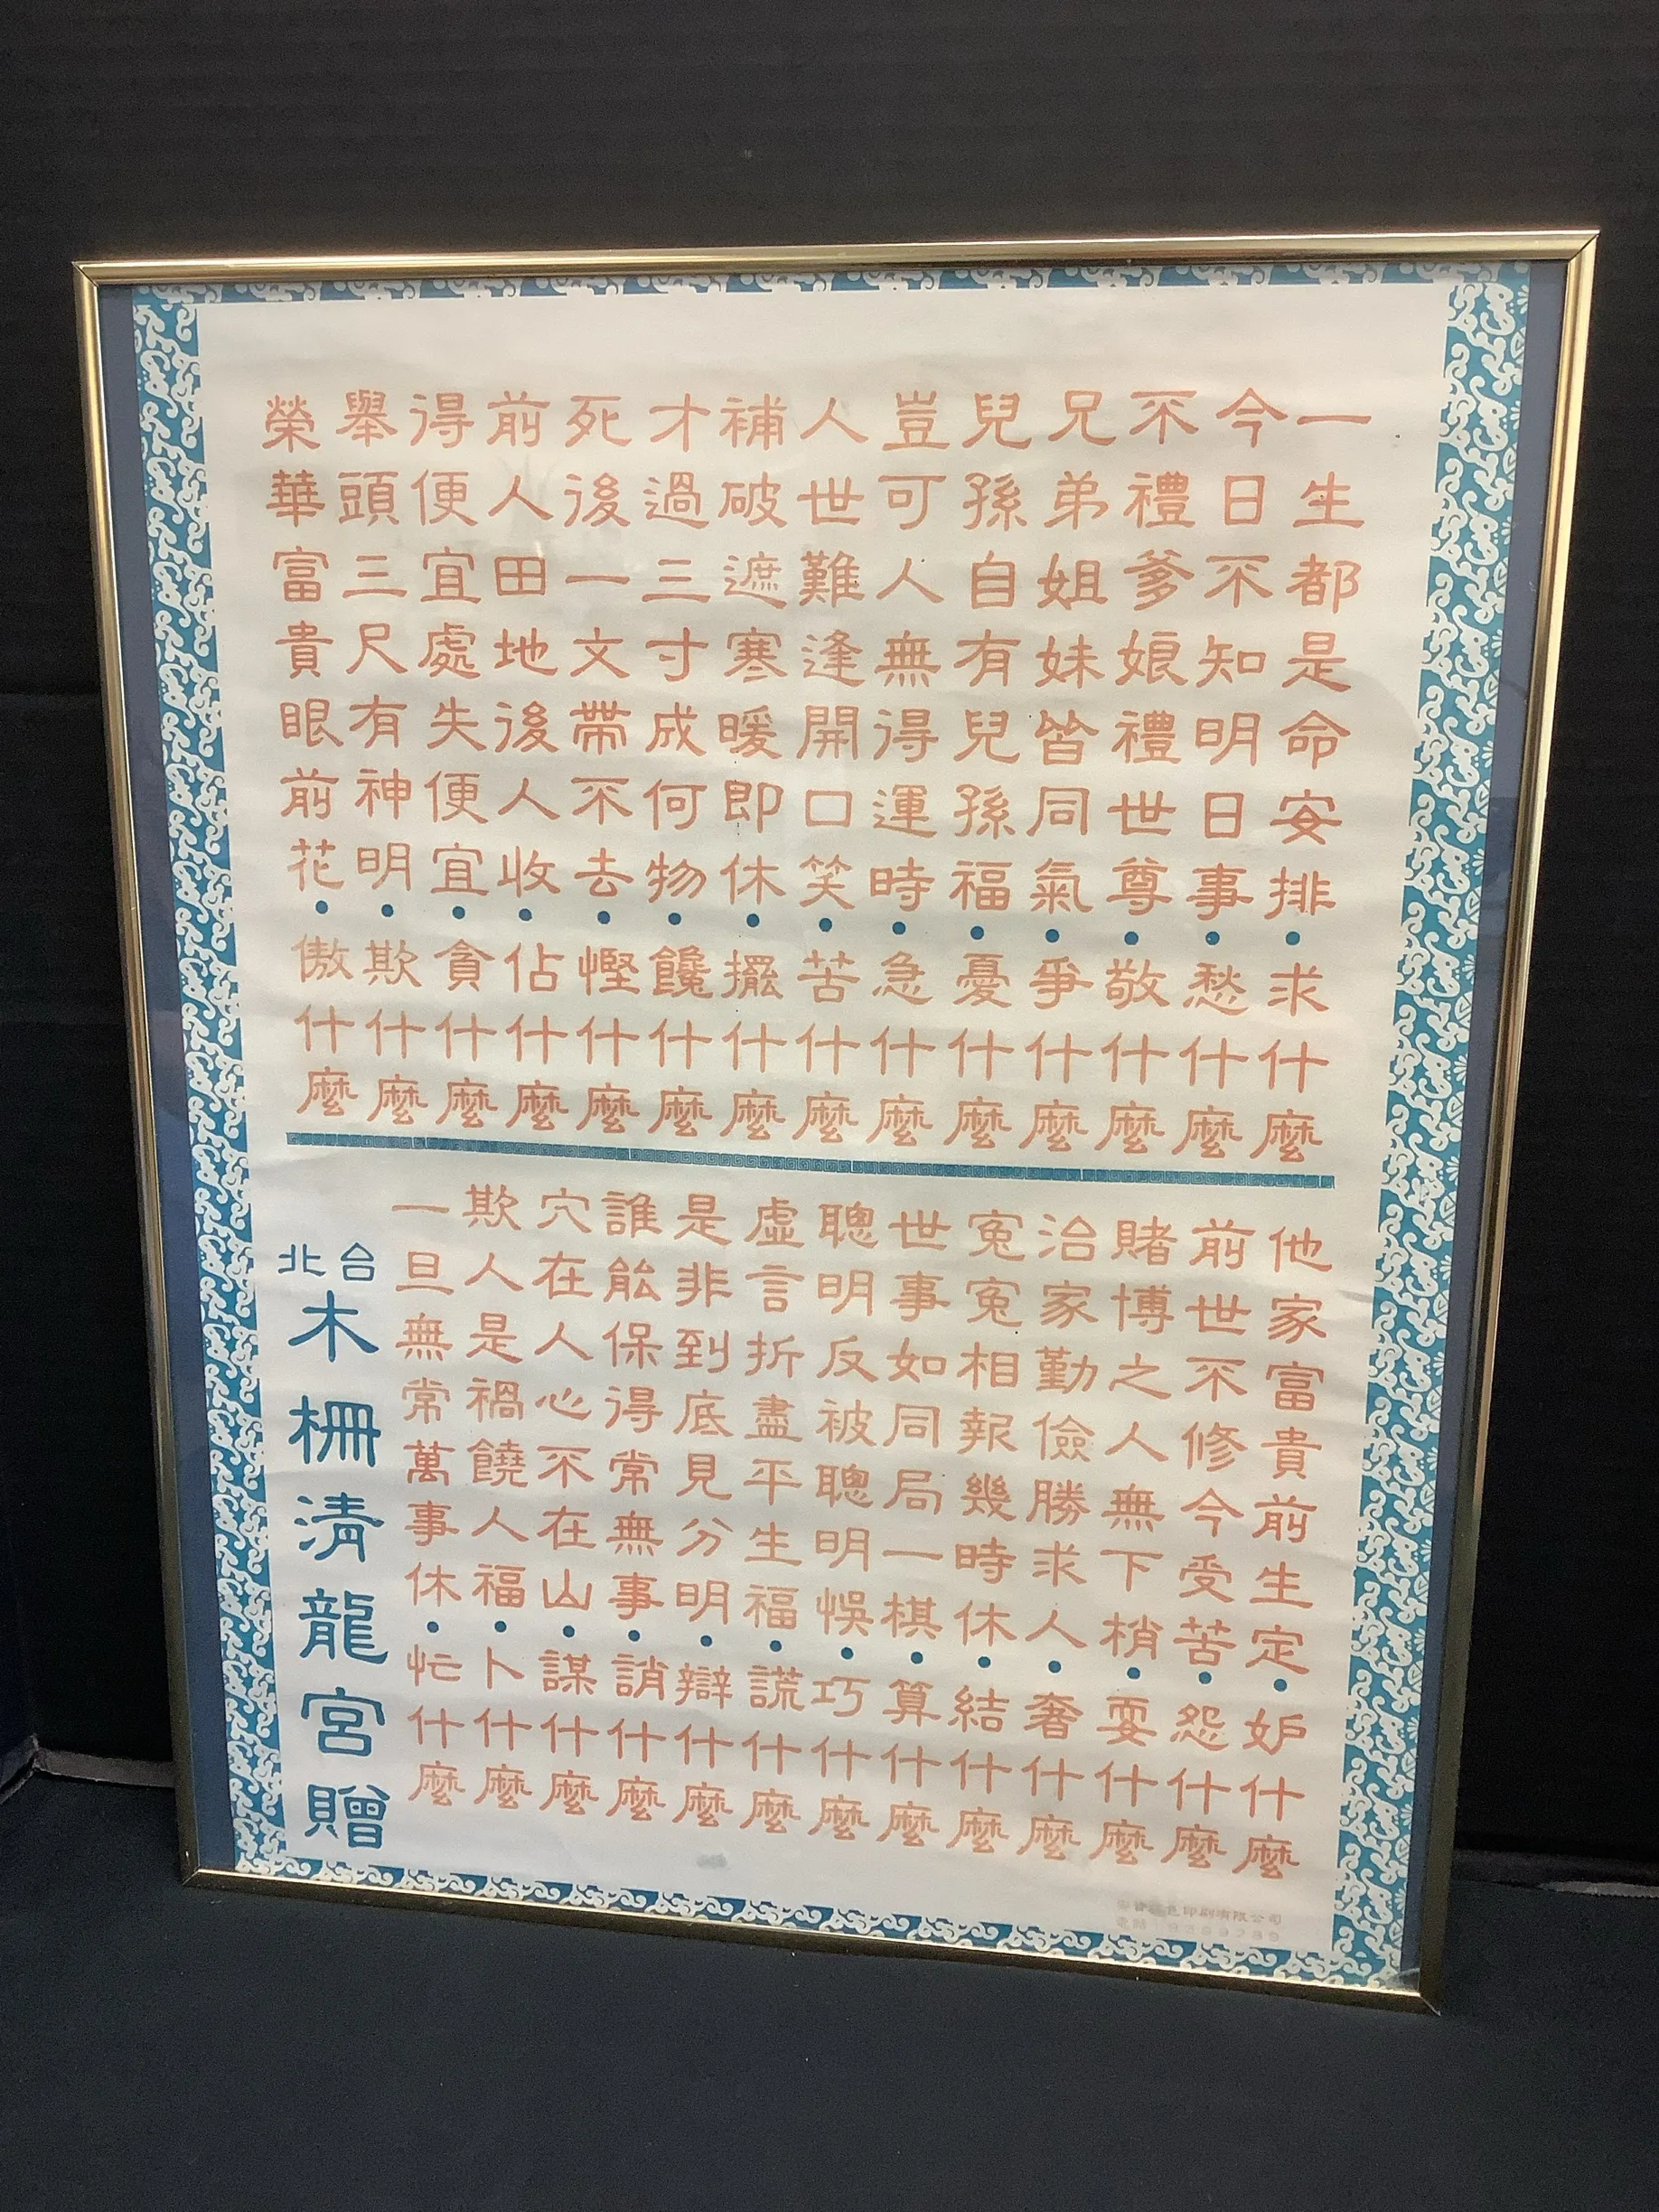 一生都是命安排•求什麼
今日不知明日事•愁什麼
不禮爹娘禮世尊•敬什麼
兄弟姐妹皆同氣•爭什麼
兒孫自有兒孫福•憂什麼
豈可人無得運時•急什麼
人世難逢開口笑•苦什麼
補破遮寒暖即休•擺什麼
才過三寸成何物•饞什麼
死後一文帶不去•慳什麼
前人田地後人收•佔什麼
得便宜處失便宜•貪什麼
舉頭三尺有神明•欺什麼
榮華富貴眼前花•傲什麼
他家富貴前生定•妒什麼
前世不修今受苦•怨什麼
賭博之人無下梢•耍什麼
治家勤儉勝求人•奢什麼
冤冤相報幾時休•結什麼
世事如同一局棋•算什麼
聰明反被聰明悞•巧什麼
虛言折盡平生福•謊什麼
是非到底見分明•辯什麼
誰能保得常無事•誚什麼
穴在人心不在山•謀什麼
欺人是禍饒人福•卜什麼
一旦無常萬事休•忙什麼
台北
木柵清龍宮贈